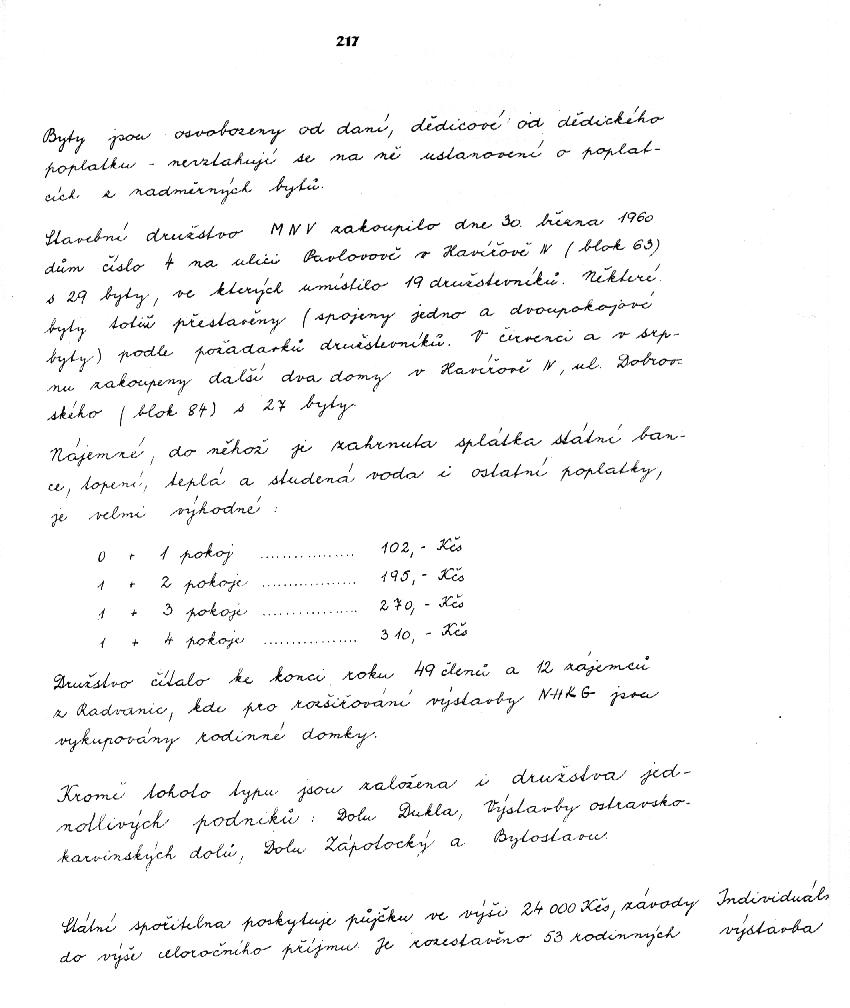 217
Byty jsou osvobozeny od daní, dědicové od dědického
poplatku - nevztahují se na ně ustanovení o poplat-
cích z nadměrných bytů.
Stavební družstvo MNV zakoupilo dne 30. března 1960
dům číslo 4 na ulici Pavlovově v Havířově IV (blok 63)
s 29 byty, ve kterých umístilo 19 družstevníků. Některé
byty totiž přestavěny (spojeny jedno a dvoupokojové
byty) podle požadavků družstevníků. V červenci a v srp-
nu zakoupeny další dva domy v Havířově IV, ul. Dobrov-
ského (blok 84) s 27 byty.
Nájemné, do něhož je zahrnuta splátka státní ban-
ce, topení, teplá a studená voda i ostatní poplatky,
je velmi výhodné:
0 + 1 pokoj ................. 102,- Kčs
1 + 2 pokoje ................. 195,- Kčs
1 + 3 pokoje ................. 270,- Kčs
1 + 4 pokoje ................. 310,- Kčs
Družstvo čítalo ke konci roku 49 členů a 12 zájemců
z Radvanic, kde pro rozšiřování výstavby NHKG jsou
vykupovány rodinné domky.
Kromě tohoto typu jsou založena i družstva jed-
notlivých podniků: Dolu Dukla, Výstavby ostravsko-
karvinských dolů, Dolu Zápotocký a Bytostavu.
Státní spořitelna poskytuje půjčku ve výši 24 000 Kčs, závody
do výše celoročního příjmu. Je rozestavěno 53 rodinných
Individuáln
výstavba